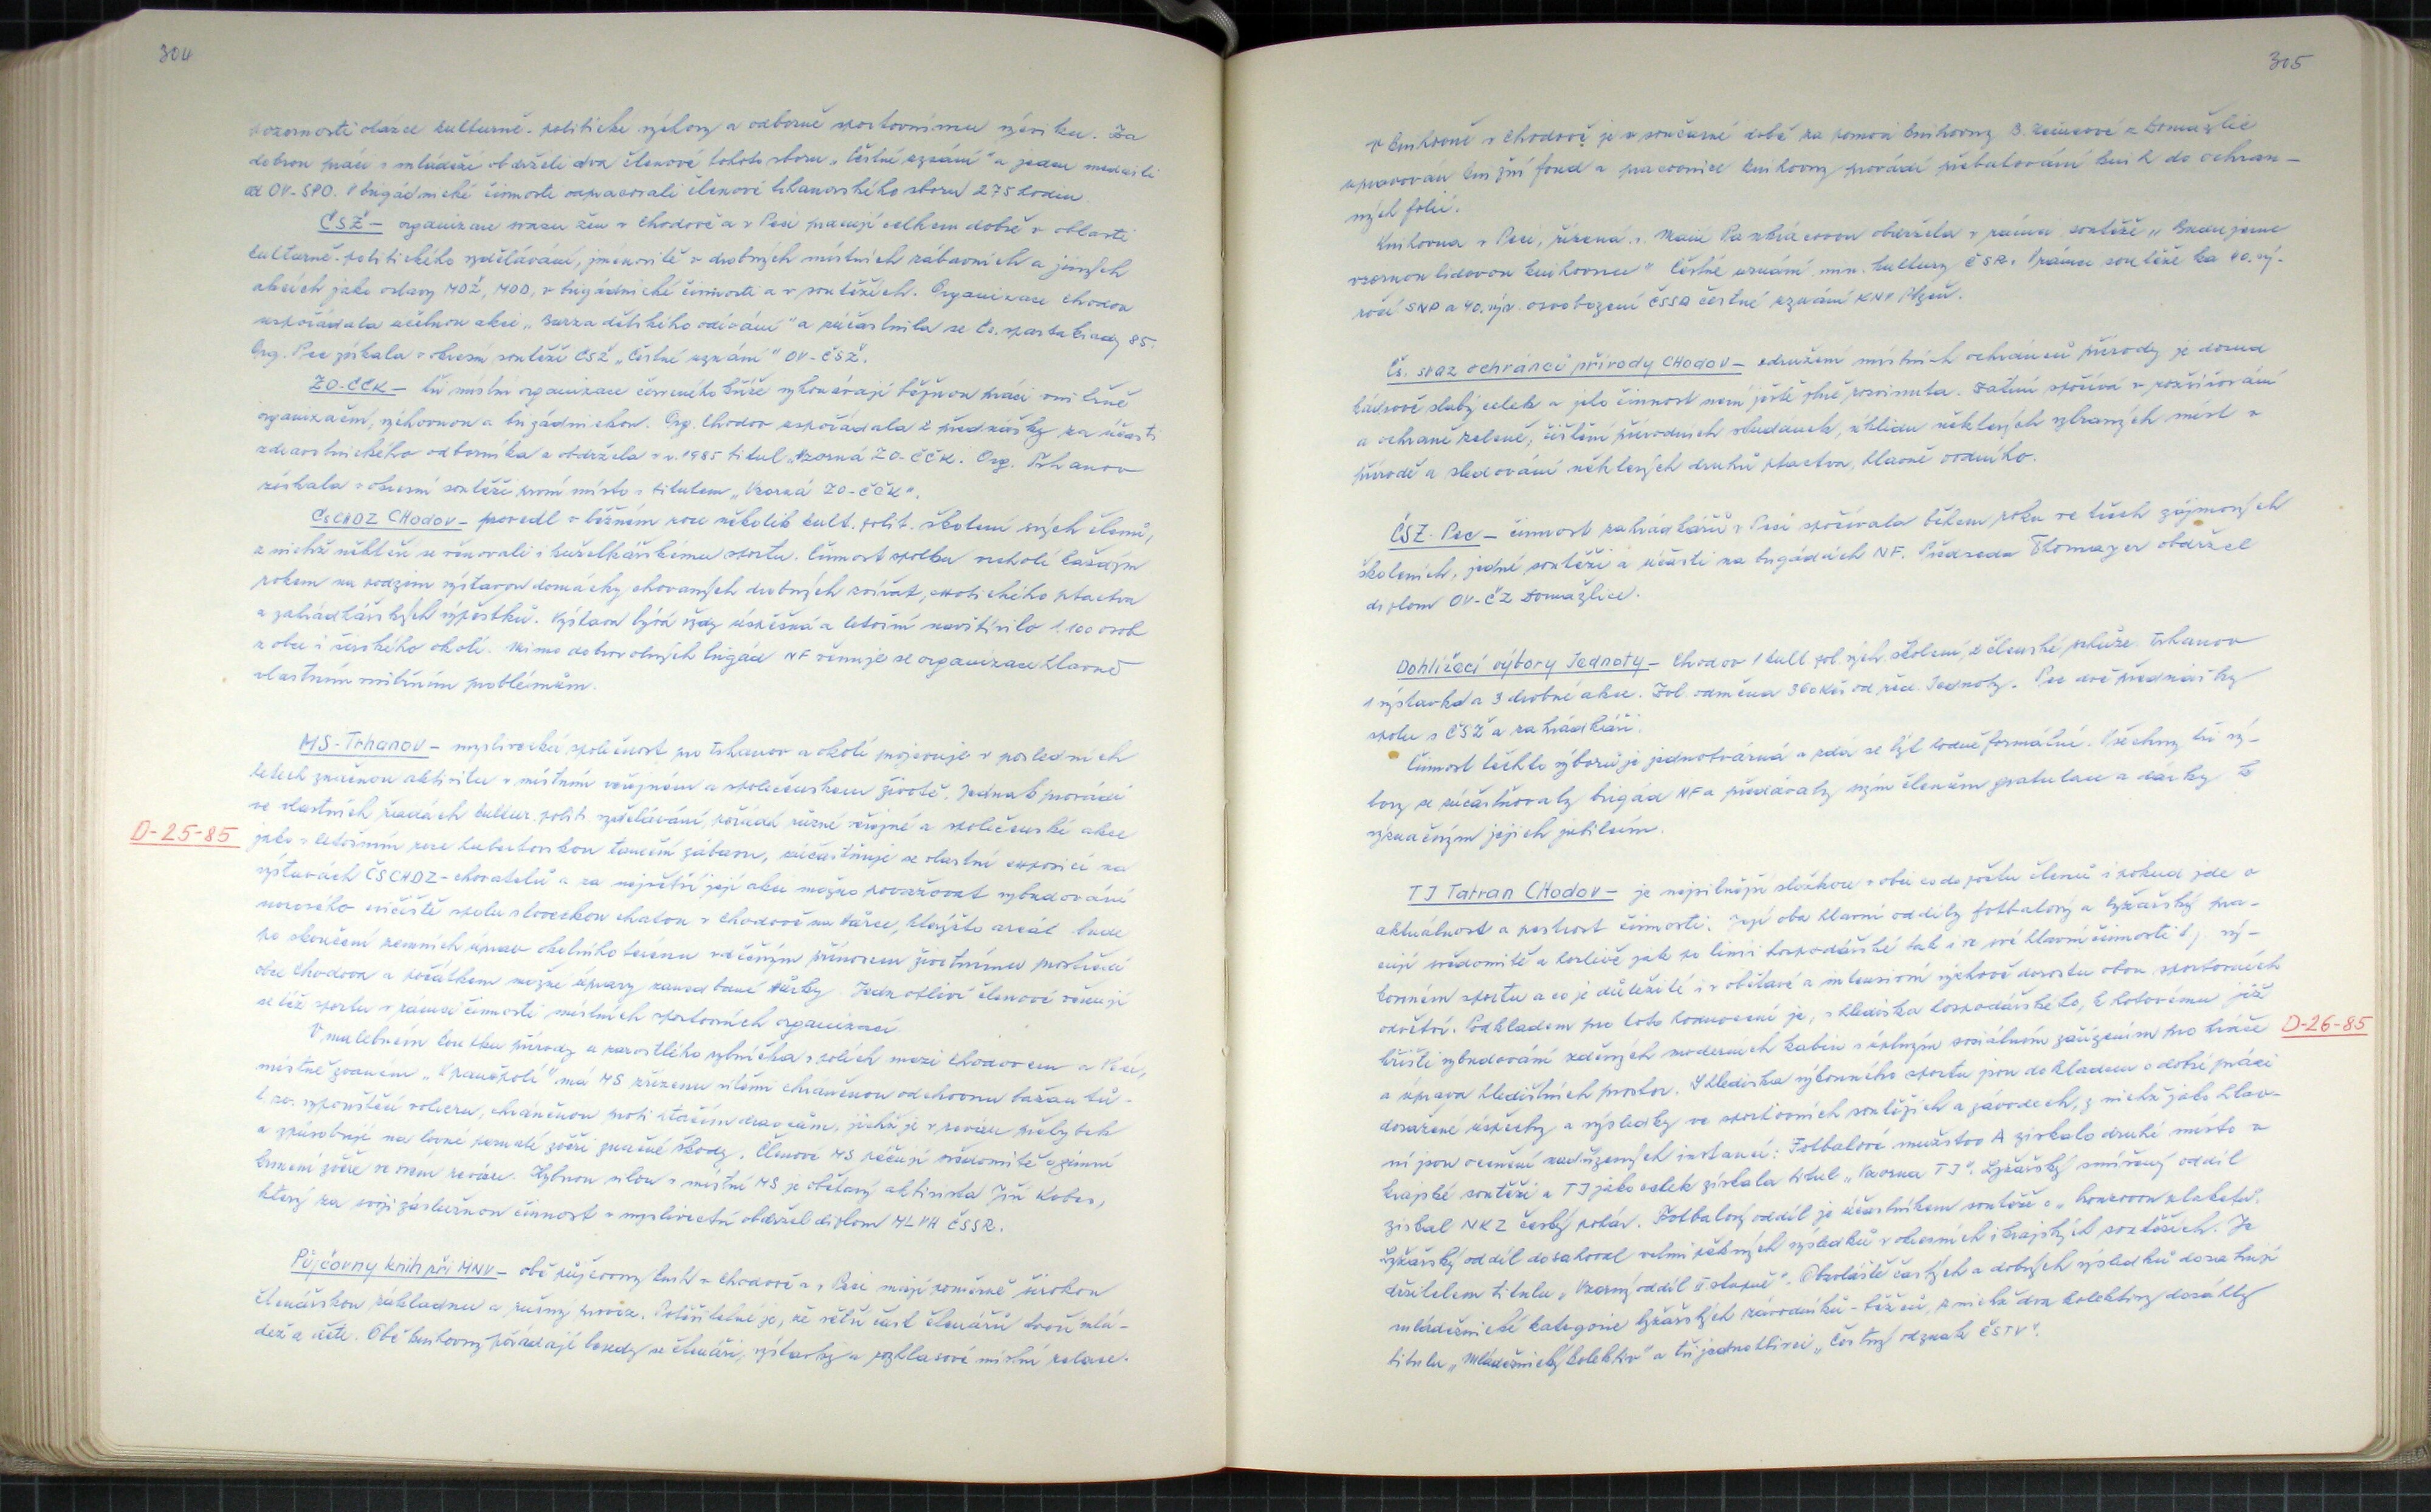 304
pozornosti otázce kulturně-politické výchovy a odborně sportovnímu výcviku. Za
dobrou práci s mládeží obdrželi dva členové tohoto sboru „Čestné uznání" a jeden medaili
od OV-SPO. V brigádnické činnosti odpracovali členové trhanovského sboru 275 hodin.
ČSŽ – organizace svazu žen v Chodově a v Peci pracují celkem dobře v oblasti
kulturně-politického vzdělávání, jmenovitě v drobných místních zábavních a jiných
akcích jako oslavy MDŽ, MDD, v brigádnické činnosti a v soutěžích. Organizace Chodov
uspořádala účelnou akci „Burza dětského odívání" a zúčastnila se Čs. spartakiady 85.
Org. Pec získala v okresní soutěži ČSŽ „Čestné uznání" OV-ČSŽ.
ZO-ČČK – tři místní organizace červeného kříže vykonávají běžnou práci vnitřně
organizační, výchovnou a brigádnickou. Org. Chodov uspořádala 2 přednášky za účasti
zdravotnického odborníka a obdržela v r. 1985 titul „Vzorná ZO-ČČK. Org. Trhanov
získala v okresní soutěži první místo s titulem „Vzorná ZO-ČČK".
ČSCHDZ CHodov – provedl v běžném roce několik kult. polit. školení svých členů,
z nichž někteří se věnovali i kuželkářskému sportu. Činnost spolku vrcholí každým
rokem na podzim výstavou domácky chovaných drobných zvířat, exotického ptactva
a zahrádkářských výpěstků. Výstava bývá vždy úspěšná a letošní navštívilo 1.100 osob
z obce i širokého okolí. Mimo dobrovolných brigád NF věnuje se organizace hlavně
vlastním vnitřním problémům.
MS-Trhanov – myslivecká společnost pro Trhanov a okolí projevuje v posledních
letech značnou aktivitu v místním veřejném a společenském životě. Jednak provádí
ve vlastních řadách kultur. polit. vzdělávání, pořádá různé veřejné a společenské akce
D-25-85
jako v letošním roce hubertovskou taneční zábavu, zúčastňuje se vlastní exposicí na
výstavách ČSCHDZ-chovatelů a za největší její akci možno považovat vybudování
nového cvičiště spolu s loveckou chatou v Chodově na Vářce, kterýžto areál bude
po skončení zemních úprav okolního terénu vděčným přínosem životnímu prostředí
obce Chodova a počátkem možné úpravy zanedbané Vářky. Jednotliví členové věnují
se též sportu v rámci činnosti místních sportovních organizací.
V malebném koutku přírody u zarostlého rybníčka v polích mezi Chodovem a Pecí,
místně zvaném má MS zřízenu sítěmi chráněnou odchovnu bažan tů-
t. zv. vypouštěcí voliéru, chráněnou proti ptačím dravcům, jichž je v revíru přebytek
a způsobují na lovné pernaté zvěři značné škody. Členové MS pečují svědomitě o zimní
krmení zvěře ve svém revíru. Hybnou silou v místní MS je obětavý aktivista Jiří Kobes,
který za svoji záslužnou činnost v myslivectví obdržel diplom MLVH ČSSR.
Půjčovny knih při MNV – obě půjčovny knih v Chodově a v Peci mají poměrně širokou
čtenářskou základnu a rušný provoz. Potěšitelné je, že větší část čtenářů tvoří mlá-
dež a děti. Obě knihovny pořádají besedy se čtenáři, výstavky a rozhlasové místní relace.
305
V knihovně v Chodově je v současné době za pomoci knihovny z Domažlic
upravován knižní fond a pracovnice knihovny provádí přebalování knih do ochran-
ných folií.
Knihovna v Peci, řízená s. Marií Pankrácovou obdržela v rámci soutěže „Budujeme
vzornou lidovou knihovnu" čestné uznání min. kultury ČSR. V rámci soutěže ka 40. vý-
ročí SNP a 40. výr. osvobození ČSSR čestné uznání KNV Plzeň.
Čs. svaz ochránců přírody CHodov – sdružení místních ochránců přírody je dosud
kádrově slabý celek a jeho činnost není ještě plně rozvinuta. Zatím spočívá v rozšiřování
a ochraně zeleně, čištění přírodních studánek, úklidu některých vybraných míst v
přírodě a sledování některých druhů ptactva, hlavně vodního.
ČSZ-Pec – činnost zahrádkářů v Peci spočívala během roku ve třech zájmových
školeních, jedné soutěži a účasti na brigádách NF. Předseda Thomayer obdržel
diplom OV-ČZ Domažlice.
Dohlížecí výbory Jednoty – Chodov 1 kult. pol. vých. školení, 2 členské schůze. Trhanov
1 výstavka a 3 drobné akce. Zvl. odměna 360 Kčs od řed. Jednoty. Pec dvě přednášky
spolu s ČSŽ a zahrádkáři.
Činnost těchto výborů je jednotvárná a zdá se být hodně formální. Všechny tři vý-
bory se zúčastňovaly brigád NF a předávaly svým členům gratulace a dárky k
význačným jejich jubileím.
TJ Tatran CHodov – je nejsilnější složkou v obci co do počtu členů i pokud jde o
aktuálnost a pestrost činnosti. Její oba hlavní oddíly fotbalový a lyžařský pra-
cují svědomitě a horlivě jak po linii hospodářské tak i ve své hlavní činnosti tj. vý-
konném sportu a co je důležité i v obětavé a intensivní výchově dorostu obou sportovních
odvětví. Podkladem pro toto hodnocení je, s hlediska hospodářského, k hotovému již
D-26-85
hřišti vybudování zděných moderních kabin s úplným sociálním zařízením pro hráče
a úprava hledištních prostor. S hlediska výkonného sportu jsou dokladem o dobré práci
dosažené úspěchy a výsledky ve sportovních soutěžích a závodech, z nichž jako hlav-
ní jsou ocenění nadřízených instancí: Fotbalové mužstvo A získalo druhé místo v
krajské soutěži a TJ jako celek získala titul „Vzorná TJ". Lyžařský oddíl
získal NKZ český pohár. Fotbalový oddíl je účastníkem soutěže o „bronzovou plaketu".
Lyžařský oddíl dosahoval velmi pěkných výsledků v okresních i krajských soutěžích. Je
držitelem titulu „Vzorný oddíl II stupně". Obzvláště častých a dobrých výsledků dosahují
mládežnické kategorie lyžařských závodníků - běžců, z nichž dva kolektivy dosáhly
titulu „Mládežnický kolektiv" a tři jednotlivci „Čestný odznak ČSTV".